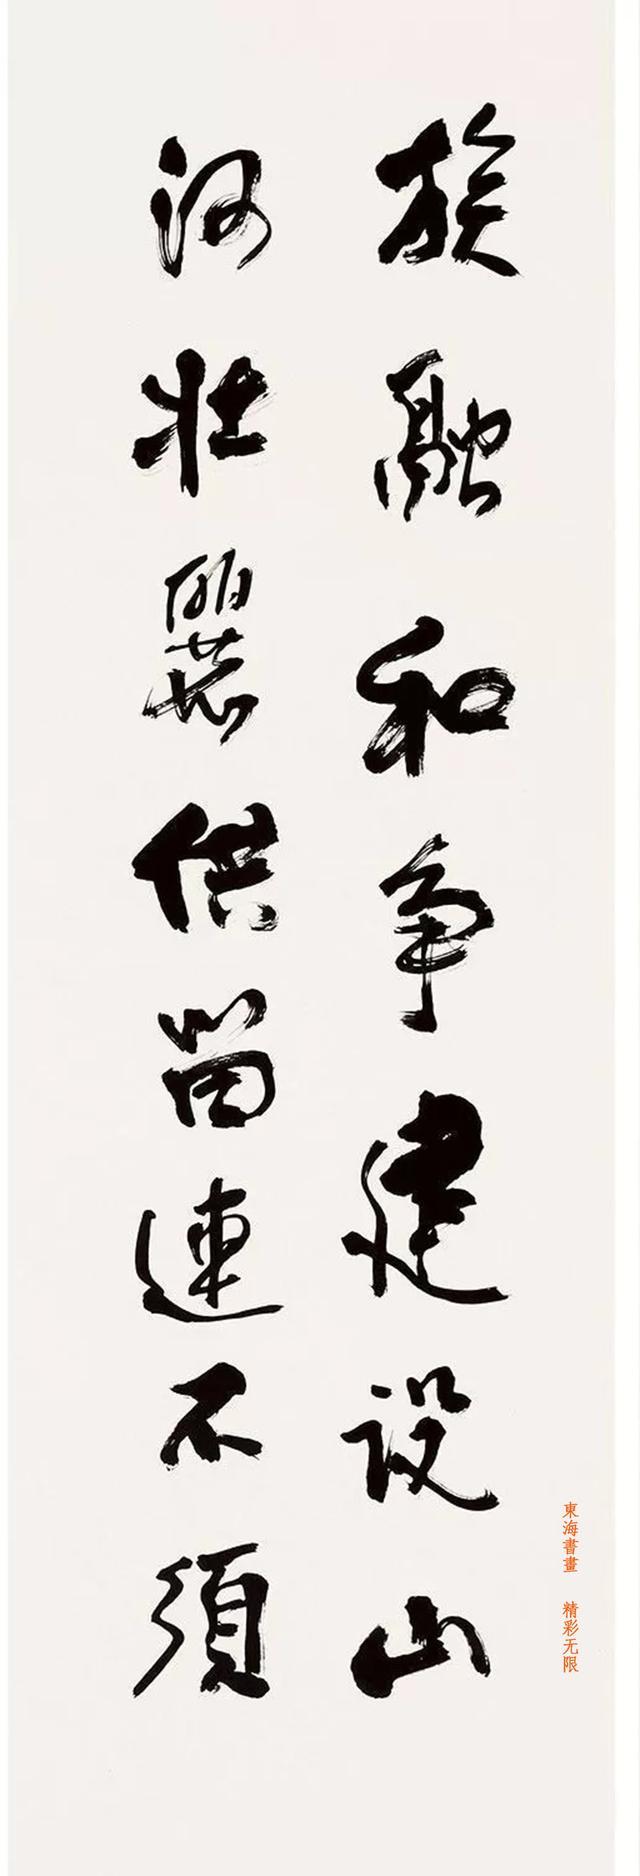 族融和争建设山
河壮麗供留連不須
東海書畫 精彩无限